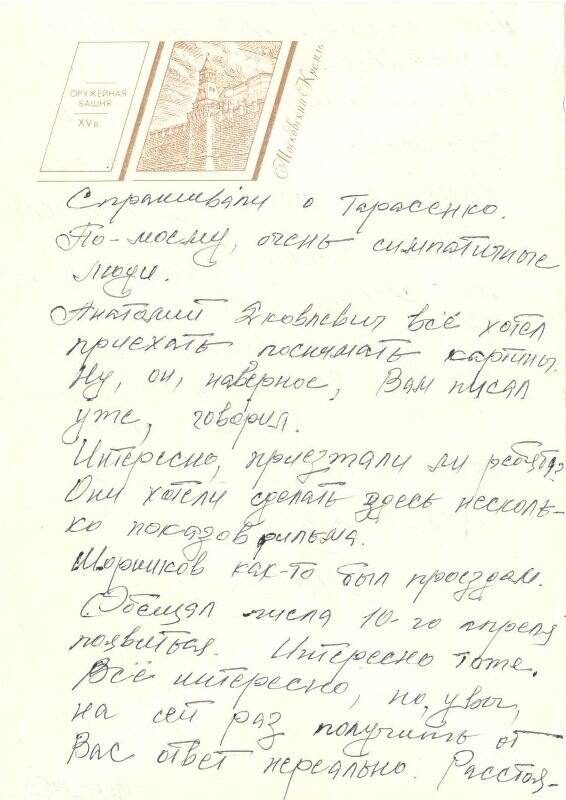 ОРУЖЕЙНАЯ
БАШНЯ
XV в.
Московский Кремль
Спрашивали о Тарасенко.
По-моему, очень симпатичные
люди.
Анатолий Яковлевич всё хотел
приехать поснимать картины.
Ну, он, наверное, Вам писал
уже, говорил.
Интересно, приезжали ли ребята?
Они хотели сделать здесь несколь-
ко показов фильма.
Шорников как-то был проездом.
Обещал числа 10-го апреля
появиться. Интересно тоже.
Всё интересно, но, увы,
на сей раз получить от
Вас ответ нереально. Расстоя-